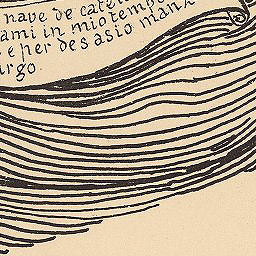 nave de cate
ami in mio tempo
e per desasio man
rgo.